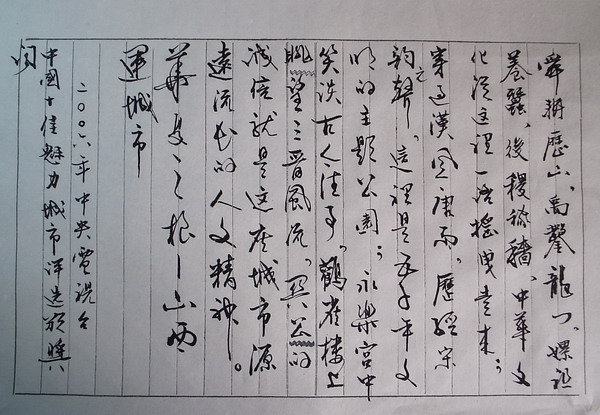 舜耕歷山、禹鑿龍门。嫘祖
养蠶、後稷稼穡、中华文
化從這裡一路搖曳走来；
穿过漢風唐雨、歷經宋
韵之聲。這裡是五千年文
明的主題公園；永樂宮中
笑谈古今往事。鸛雀樓上
眺望三晋風流。関公的
诚信就是這座城市源
遠流长的人文精神。
華夏之根—山西
運城市
二〇〇六年中央電視台
中國十佳魅力城市评选颁獎
词